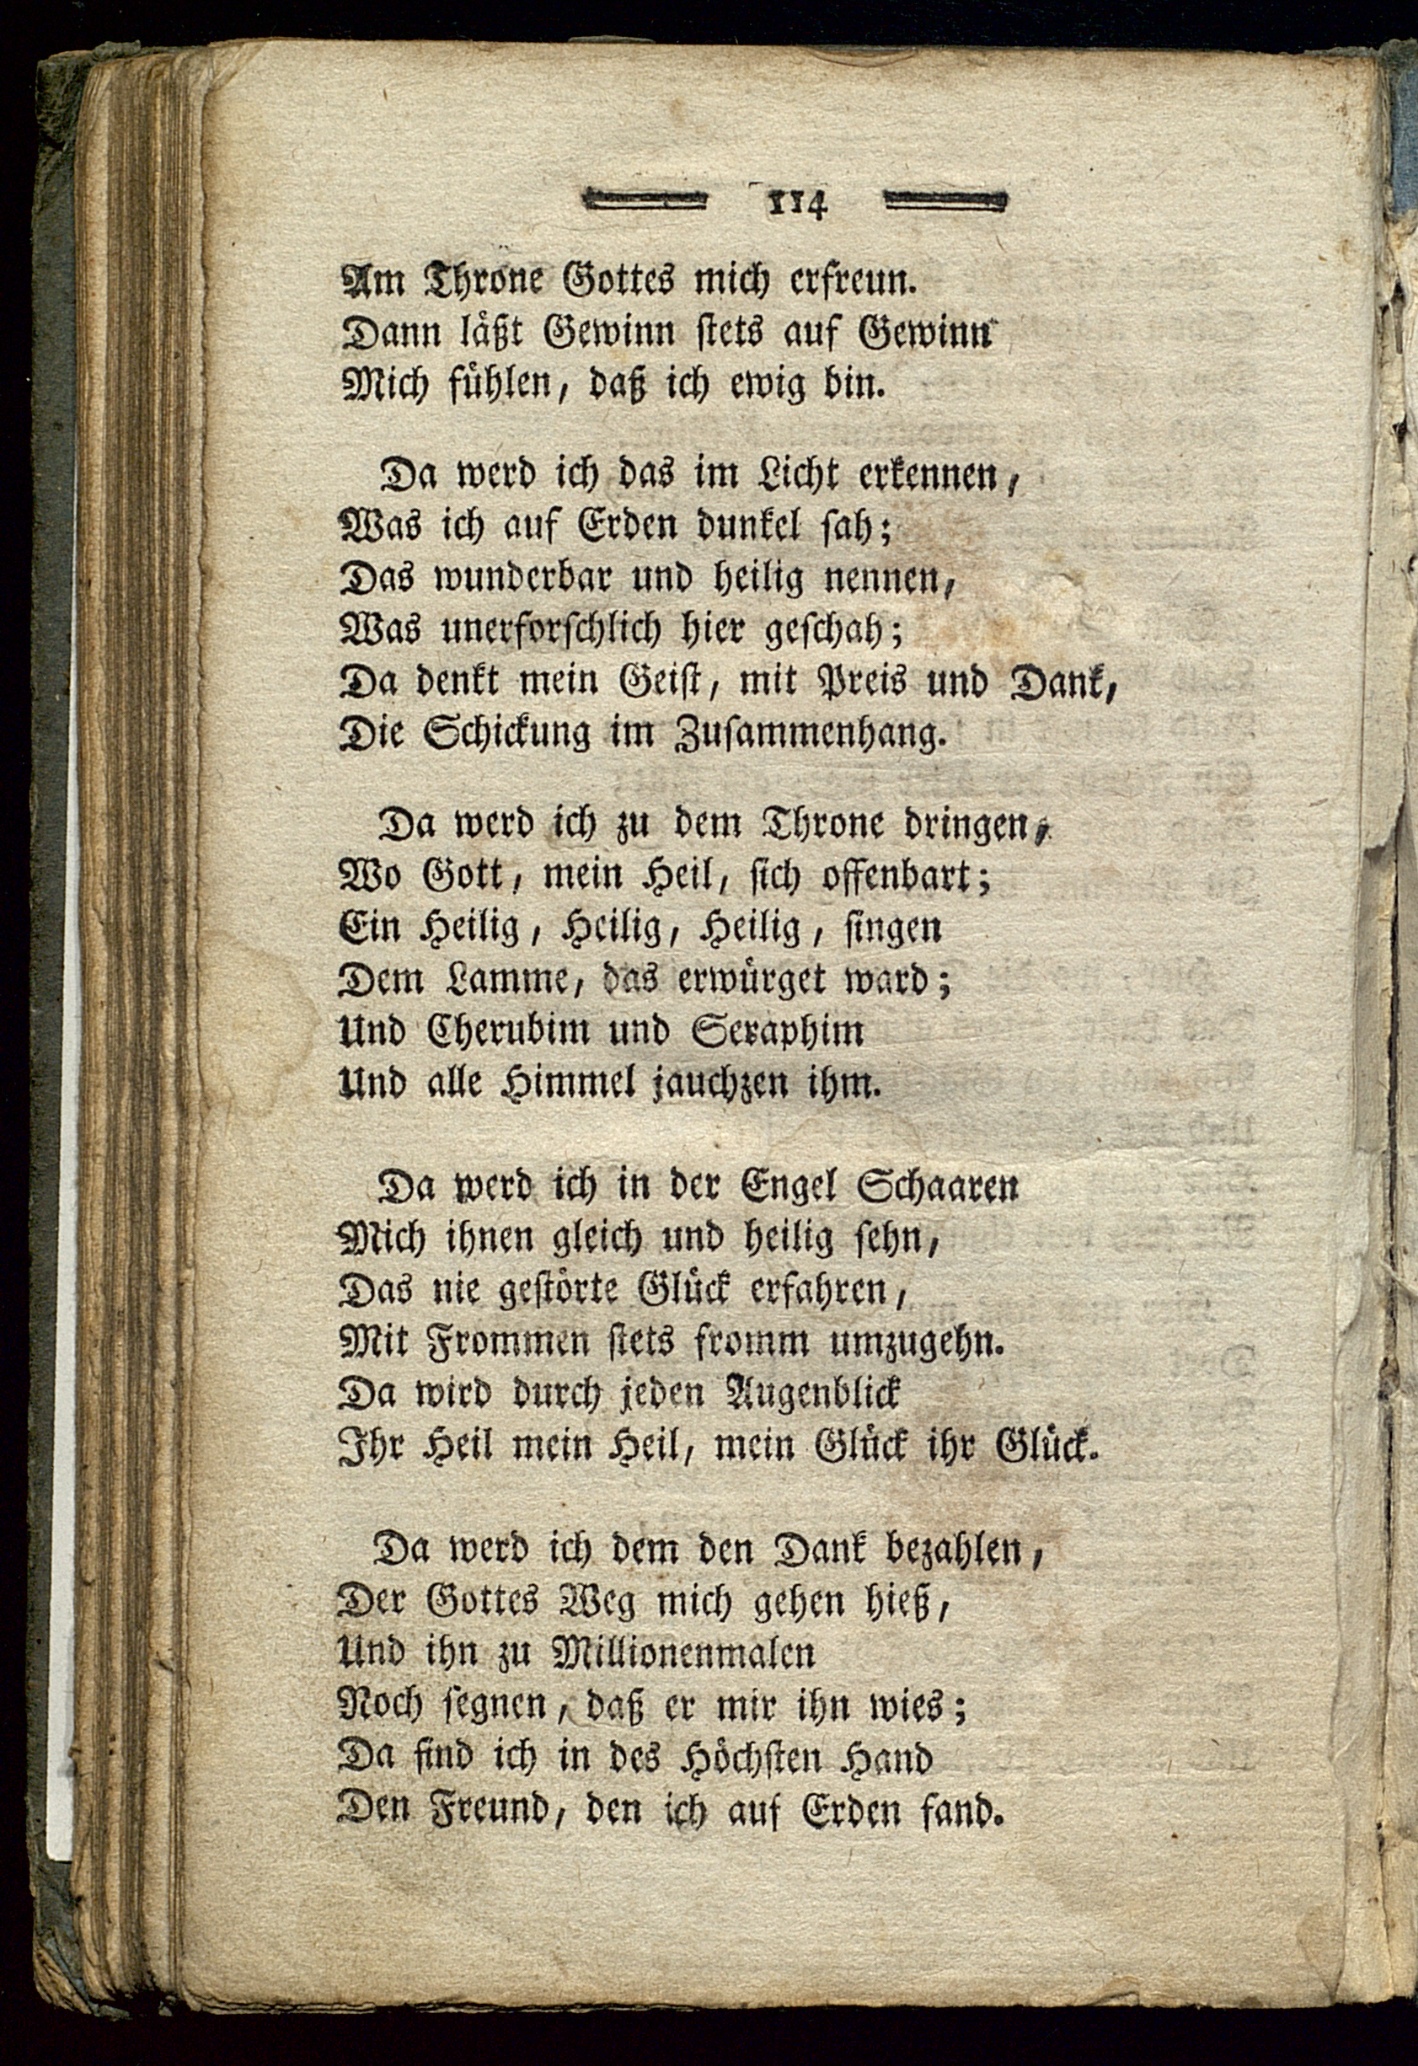 114
Am Throne Gottes mich erfreun.
Dann läßt Gewinn ſtets auf Gewinn
Mich fühlen, daß ich ewig bin.
Da werd ich das im Licht erkennen,
Was ich auf Erden dunkel ſah;
Das wunderbar und heilig nennen,
Was unerforſchlich hier geſchah;
Da denkt mein Geiſt, mit Preis und Dank,
Die Schickung im Zuſammenhang.
Da werd ich zu dem Throne dringen,
Wo Gott, mein Heil, ſich offenbart;
Ein Heilig, Heilig, Heilig, ſingen
Dem Lamme, das erwürget ward;
Und Cherubim und Seraphim
Und alle Himmel jauchzen ihm.
Da werd ich in der Engel Schaaren
Mich ihnen gleich und heilig ſehn,
Das nie geſtörte Glück erfahren,
Mit Frommen ſtets fromm umzugehn.
Da wird durch jeden Augenblick
Ihr Heil mein Heil, mein Glück ihr Glück.
Da werd ich dem den Dank bezahlen,
Der Gottes Weg mich gehen hieß,
Und ihn zu Millionenmalen
Noch ſegnen, daß er mir ihn wies;
Da find ich in des Höchſten Hand
Den Freund, den ich auf Erden fand.